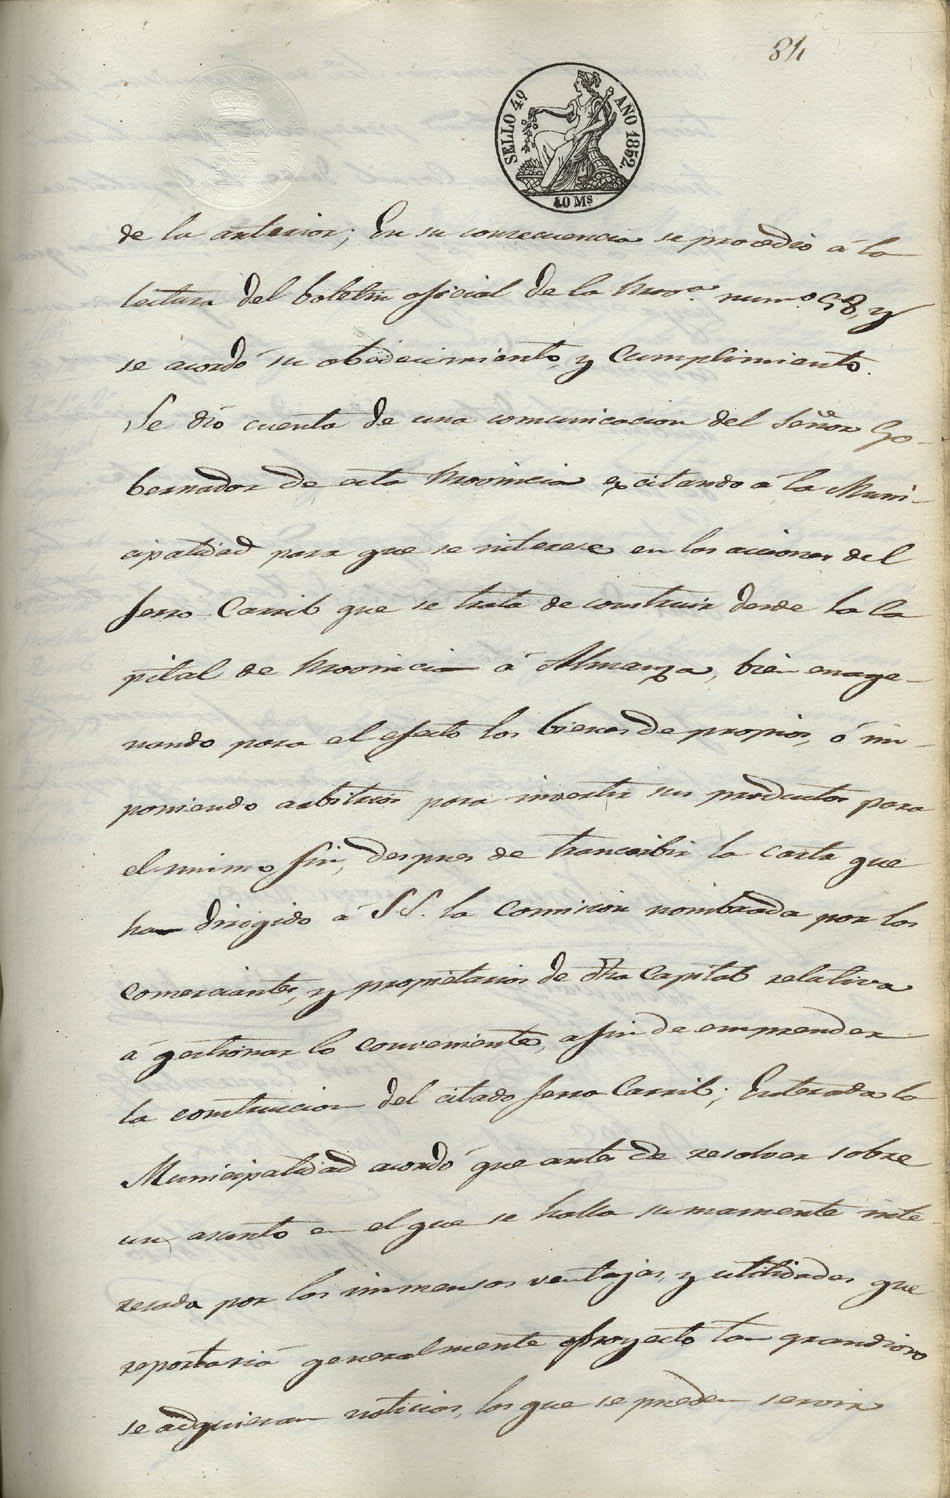 84
SELLO 4º AÑO 1852.
40 Ms
de la anterior; En su consecuencia se procedio á la
lectura del boletin oficial de la Prova. numo. 58, y
se acordó su obedecimiento, y Cumplimiento.
Se dió cuenta de una comunicacion del Señor Go-
bernador de esta Provincia excitando á la Muni-
cipalidad para que se interese en las acciones del
ferro-Carril que se trata de construir desde la Ca
pital de Provincia á Almanza, bien enage-
nando para el efecto los bienes de propios, ó im-
poniendo arbitrios para invertir sus productos para
el mismo fin, despues de transcribir la carta que
ha dirigido á S.S. la Comision nombrada por los
comerciantes, y propietarios de dha Capital relativa
á gestionar lo conveniente, a fin de emprender
la construccion del citado ferro Carril; Enterada la
Municipalidad acordó que antes de resolver sobre
un asunto en el que se halla sumamente inte-
resada por las inmensas ventajas, y utilidades que
reportaria generalmente proyecto tan grandioso
se adquieran noticias, las que se pueden servir